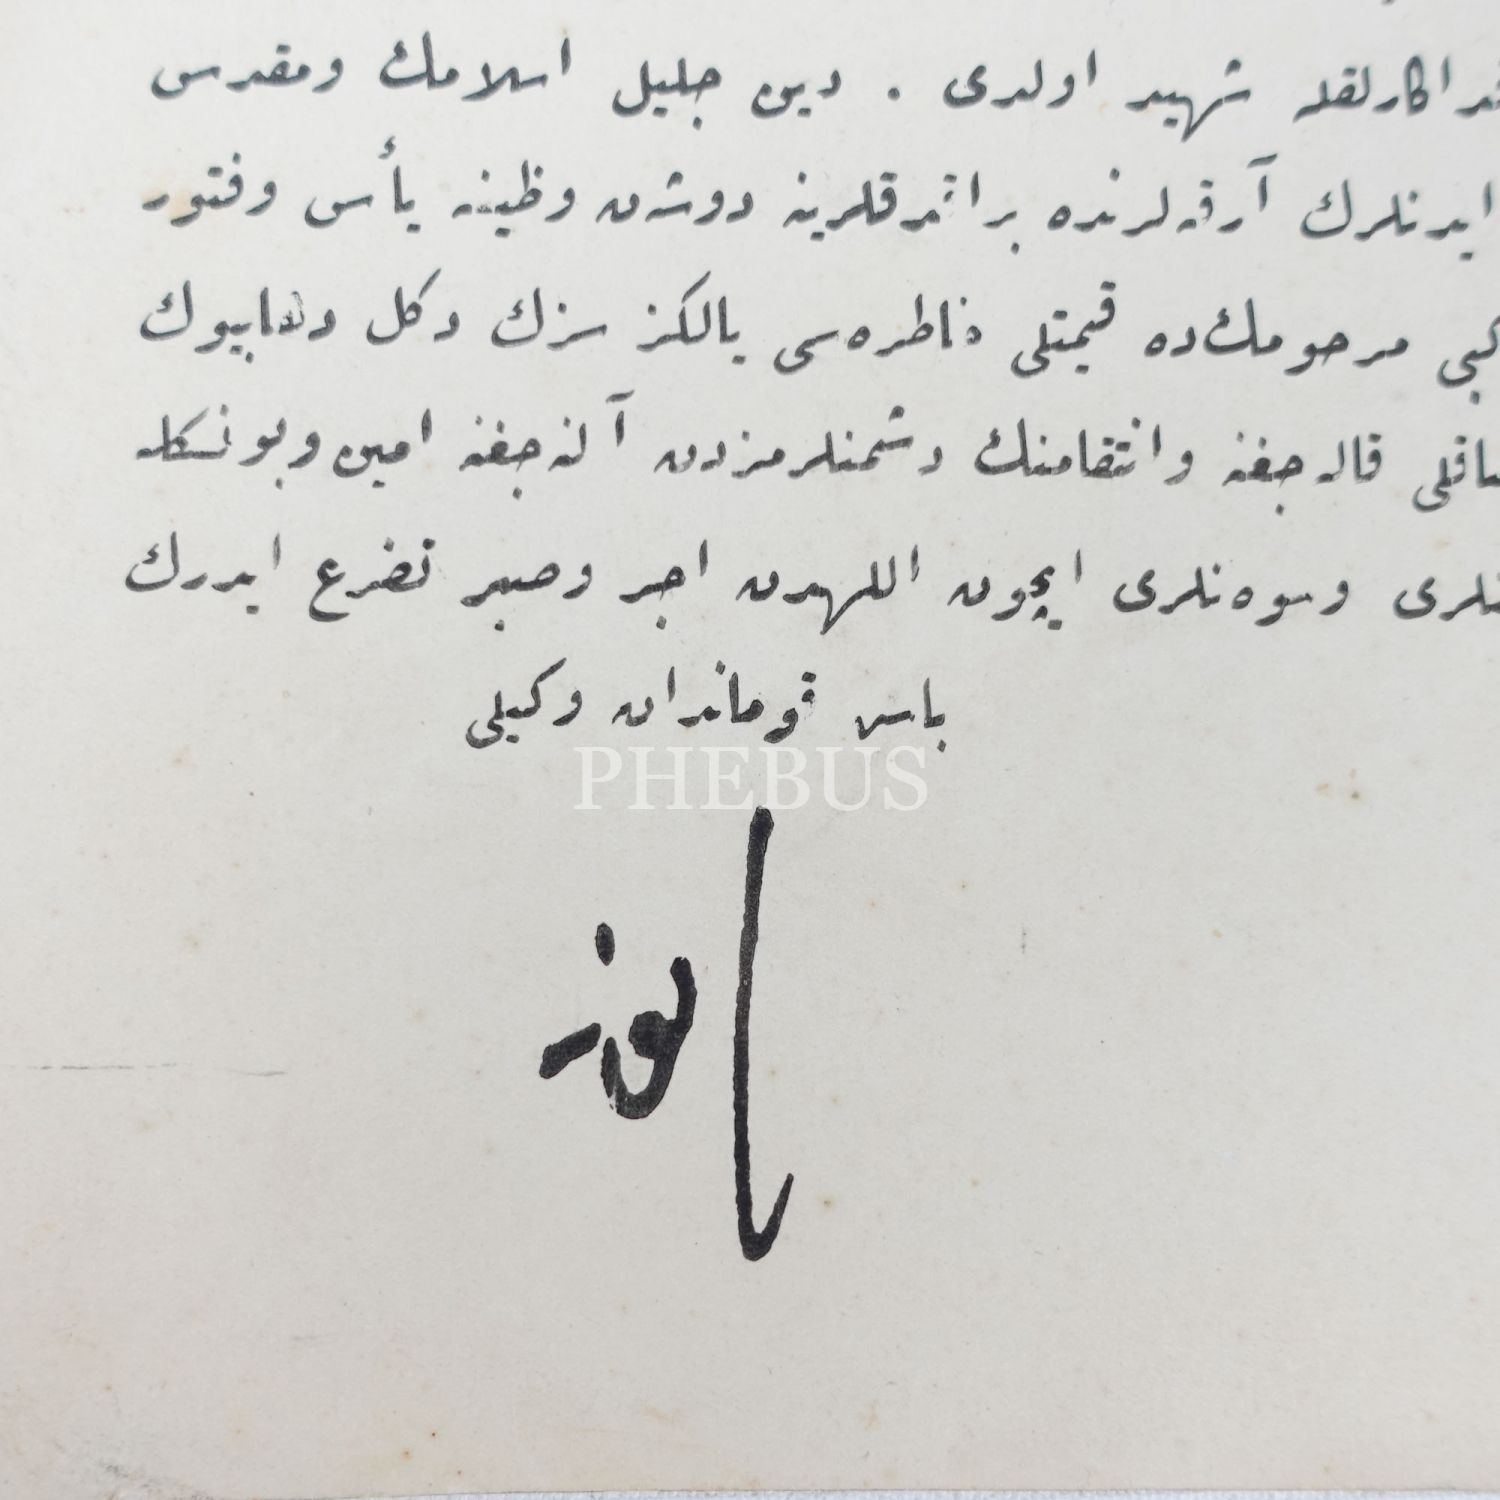 فداكارلقله شهید اولدی . دین جلیل اسلامك ومقدس
ایدنلرك آرقه‌لرنده براقدقلرینه دوشن وظیفه یأس وفتور
كبی مرحومك‌ده قیمتلی خاطره‌سی یالكز سزك دكل دها بیوك
قاله‌جغنه وانتقامنك دشمنلرمزدن آلنه‌جغنه امین وبونكله
وسوه‌نلری ایچون اللهدن اجر وصبر تضرع ایدرك
باش قوماندان وكیلی
PHEBUS
انور